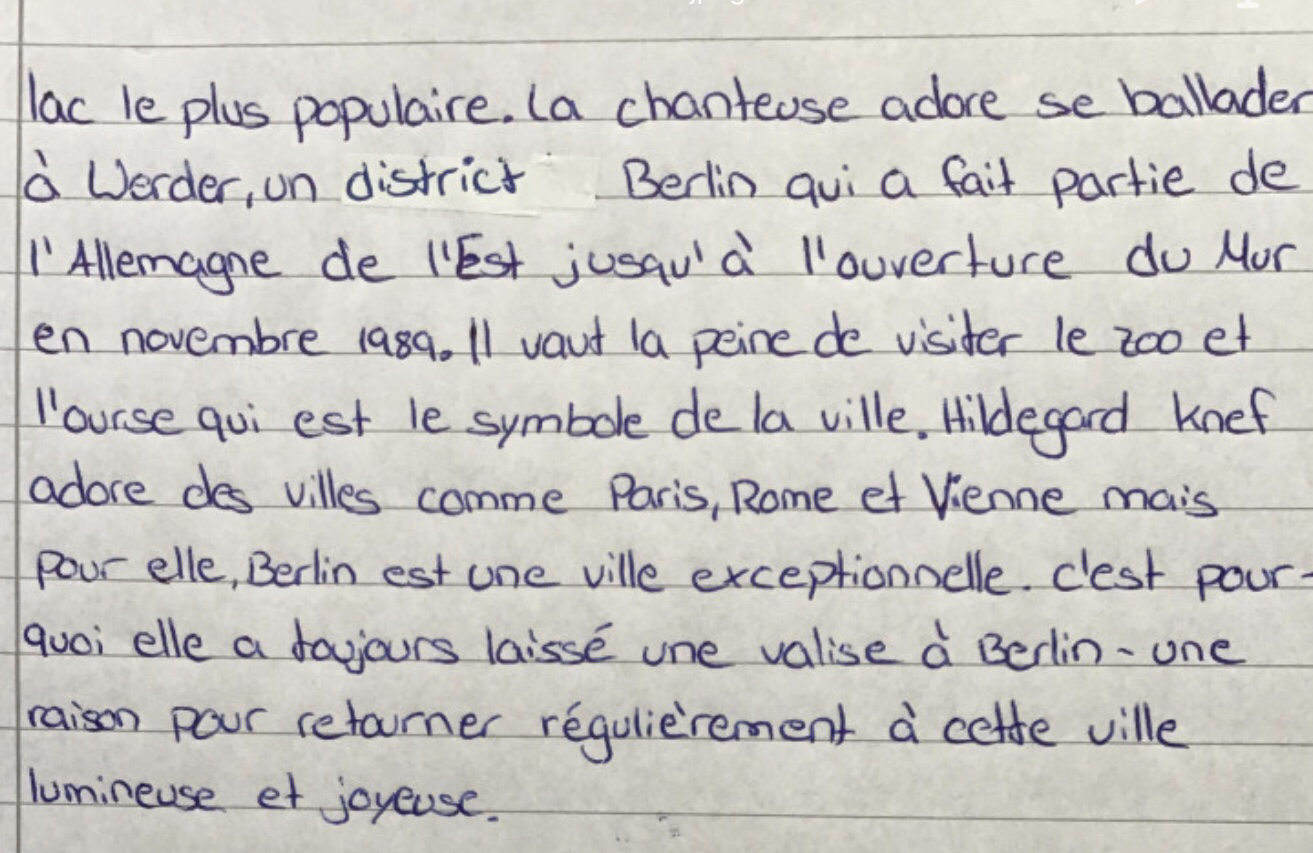 lac le plus populaire. La chanteuse adore se ballader
à Werder, un district Berlin qui a fait partie de
l'Allemagne de l'Est jusqu'à l'ouverture du Mur
en novembre 1989. Il vaut la peine de visiter le zoo et
l'ourse qui est le symbole de la ville. Hildegard Knef
adore des villes comme Paris, Rome et Vienne mais
pour elle, Berlin est une ville exceptionnelle. c'est pour-
quoi elle a toujours laissé une valise à Berlin - une
raison pour retourner régulièrement à cette ville
lumineuse et joyeuse.